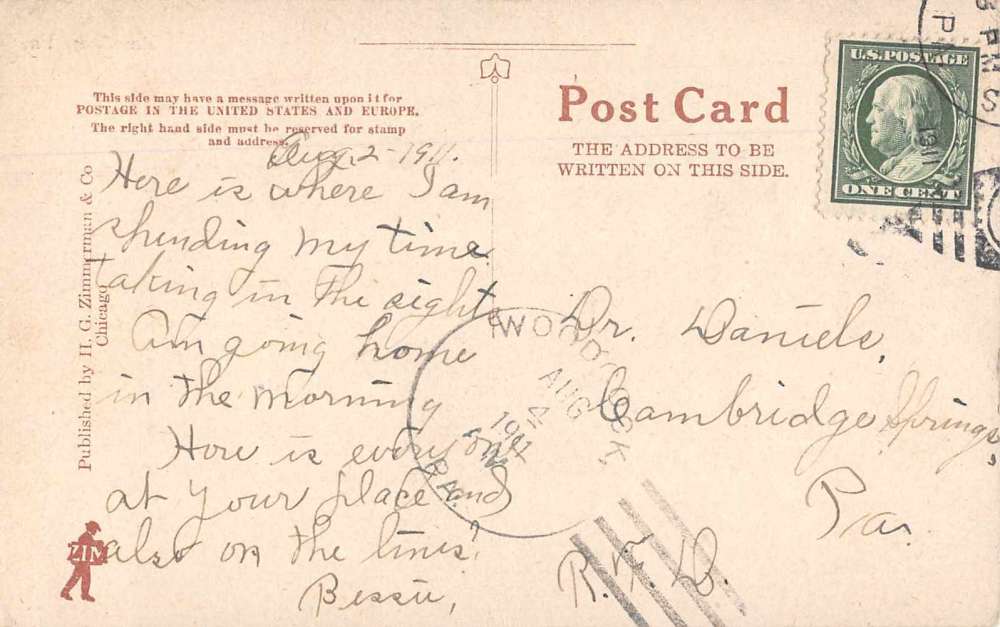 This side may have a message written upon it for
POSTAGE IN THE UNITED STATES AND EUROPE.
The right hand side must be reserved for stamp
and address.
Aug. 2-1911.
Here is where I am
spending my time
taking in the sights
Am going home
in the morning
How is every one
at your place and
also on the lines?
Bessie,
Published by H. G. Zimmerman & Co
Chicago
ZIM
Post Card
THE ADDRESS TO BE
WRITTEN ON THIS SIDE.
U.S. POSTAGE
ONE CENT
PM
1911
WOODCOCK,
AUG
4
1911
PA.
Dr. Daniels,
Cambridge Springs,
Pa.
R. F. D.